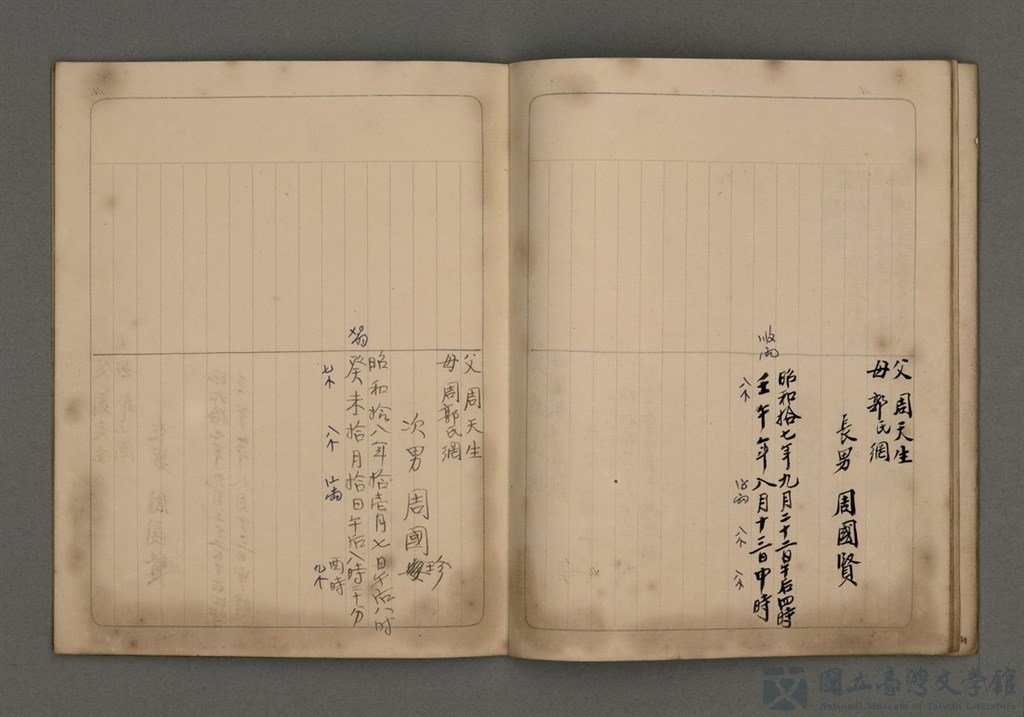 父 周天生
母 郭氏網
長男 周國賢
昭和拾七年九月二十二日午后四時
壬午年八月十三日申時
八个 八个 八个
父 周天生
母 周郭氏網
次男 周國珍
昭和拾八年拾壱月七日午后八时
癸未拾月拾日午后八時二十分
酉時
七个 八个 九个
國立臺灣文學館
National Museum of Taiwan Literature